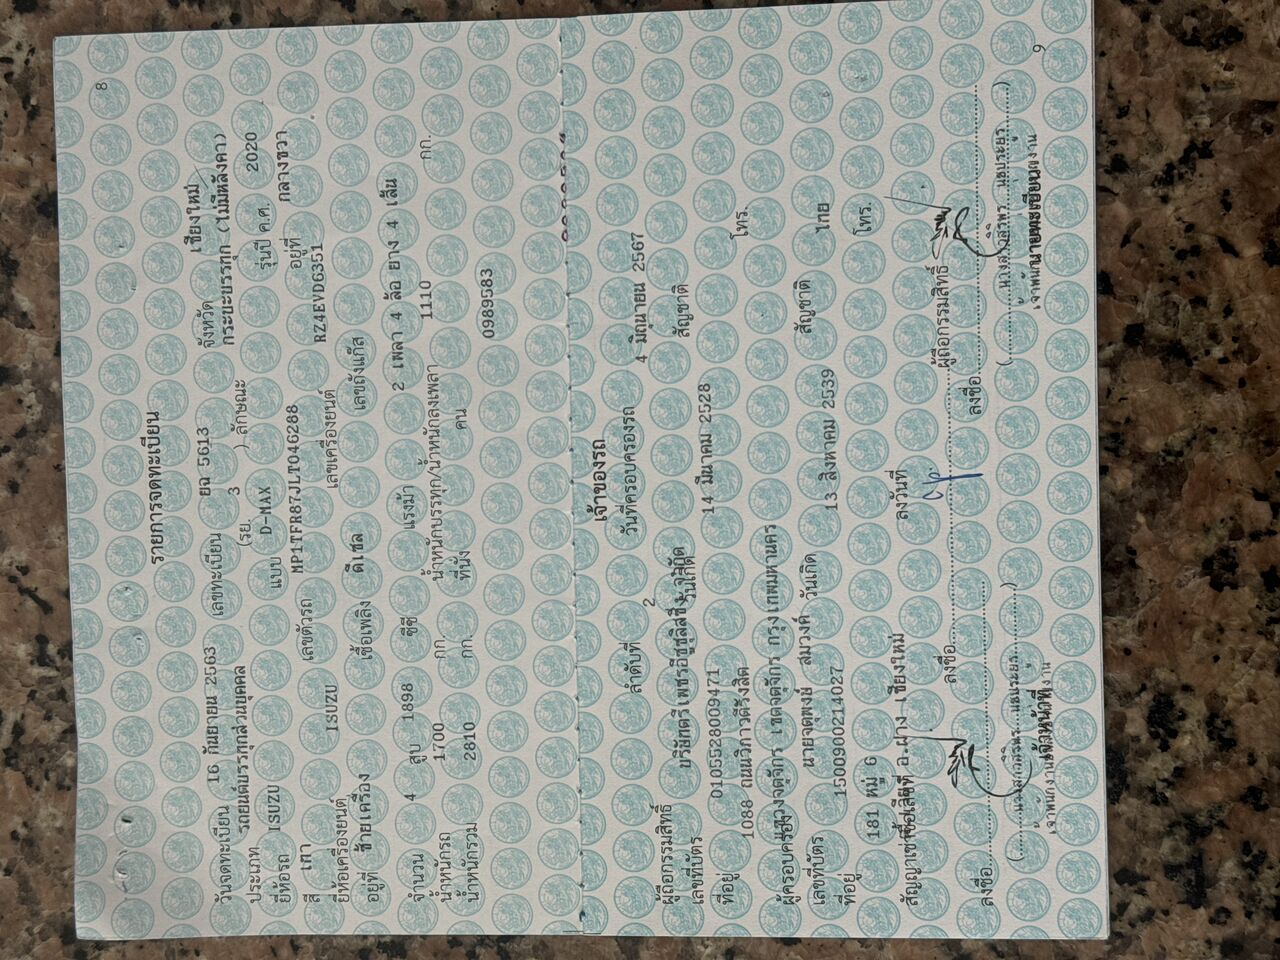 8
รายการจดทะเบียน
วันจดทะเบียน 16 กันยายน 2563 เลขทะเบียน ยฉ 5613 จังหวัด เชียงใหม่
ประเภท รถยนต์บรรทุกส่วนบุคคล (รย. 3 ) ลักษณะ กระบะบรรทุก (ไม่มีหลังคา)
ยี่ห้อรถ ISUZU แบบ D-MAX รุ่นปี ค.ศ. 2020
สี เทา เลขตัวรถ MP1TFR87JLT046288 อยู่ที่ กลางขวา
ยี่ห้อเครื่องยนต์ ISUZU เลขเครื่องยนต์ RZ4EVD6351
อยู่ที่ ซ้ายเครื่อง เชื้อเพลิง ดีเซล เลขถังแก๊ส
จำนวน 4 สูบ 1898 ซีซี แรงม้า 2 เพลา 4 ล้อ ยาง 4 เส้น
น้ำหนักรถ 1700 กก. น้ำหนักบรรทุก/น้ำหนักลงเพลา 1110 กก.
น้ำหนักรวม 2810 กก. ที่นั่ง คน
0989583
เจ้าของรถ
ลำดับที่ 2 วันที่ครอบครองรถ 4 มิถุนายน 2567
ผู้ถือกรรมสิทธิ์ บริษัทตรีเพชรอีซูซุลิสซิ่ง จำกัด
เลขที่บัตร 0105528009471 วันเกิด 14 มีนาคม 2528 สัญชาติ
ที่อยู่ 1088 ถนนวิภาวดีรังสิต
แขวงจตุจักร เขตจตุจักร กรุงเทพมหานคร โทร.
ผู้ครอบครอง นายจตุพงษ์ สมวงค์
เลขที่บัตร 1500900214027 วันเกิด 13 สิงหาคม 2539 สัญชาติ ไทย
ที่อยู่ 181 หมู่ 6
อ.ฝาง เชียงใหม่ โทร.
สัญญาเช่าซื้อเลขที่ ลงวันที่
ลงชื่อ ผู้ถือกรรมสิทธิ์
ลงชื่อ ลงชื่อ
9